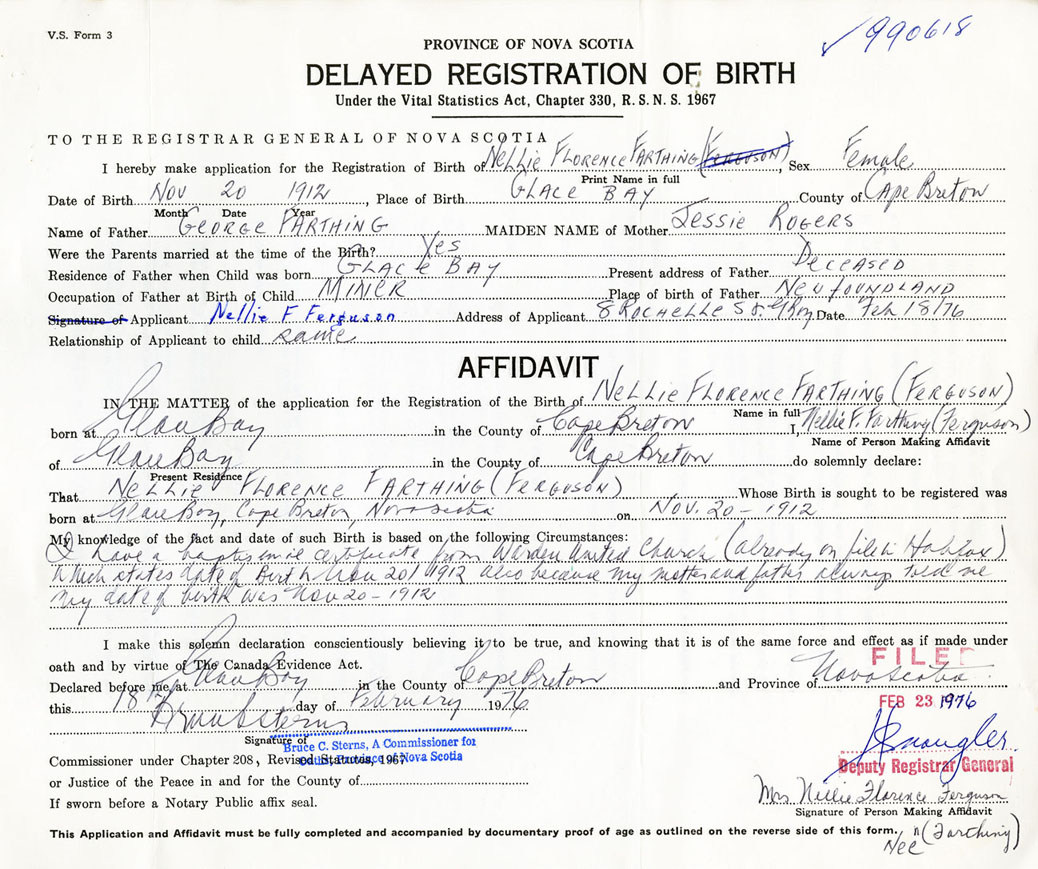 V.S. Form 3
✓990618
PROVINCE OF NOVA SCOTIA
DELAYED REGISTRATION OF BIRTH
Under the Vital Statistics Act, Chapter 330, R.S.N.S. 1967
TO THE REGISTRAR GENERAL OF NOVA SCOTIA
I hereby make application for the Registration of Birth of Nellie Florence Farthing (Ferguson), Sex Female
Print Name in full
Date of Birth Nov 20 1912, Place of Birth GLACE BAY County of Cape Breton
Month Date Year
Name of Father GEORGE FARTHING MAIDEN NAME of Mother Jessie Rogers
Were the Parents married at the time of the Birth? Yes
Residence of Father when Child was born GLACE BAY Present address of Father DECEASED
Occupation of Father at Birth of Child MINER Place of birth of Father NEWFOUNDLAND
Signature of Applicant Nellie F Ferguson Address of Applicant 8 ROCHELLE St. Date Feb 18/76
Relationship of Applicant to child same
AFFIDAVIT
IN THE MATTER of the application for the Registration of the Birth of NELLIE FLORENCE FARTHING (FERGUSON)
Name in full
born at Glace Bay in the County of Cape Breton I, Nellie F. Farthing (Ferguson)
Name of Person Making Affidavit
of Glace Bay in the County of Cape Breton do solemnly declare:
Present Residence
That NELLIE FLORENCE FARTHING (FERGUSON) Whose Birth is sought to be registered was
born at Glace Bay, Cape Breton, Nova Scotia on NOV. 20 - 1912
My knowledge of the fact and date of such Birth is based on the following Circumstances:
(I have a baptismal certificate from Warden United Church (already on file in Halifax)
which states date of Birth Nov 20/1912 also because my mother and father always told me
my date of birth was Nov 20 - 1912
I make this solemn declaration conscientiously believing it to be true, and knowing that it is of the same force and effect as if made under
oath and by virtue of The Canada Evidence Act.
FILED
Declared before me at Glace Bay in the County of Cape Breton and Province of Nova Scotia
this 18th day of February 1976
FEB 23 1976
Bruce C Sterns
Signature of
Bruce C. Sterns, A Commissioner for
Commissioner under Chapter 208, Revised Statutes, 1967
Oaths Province of Nova Scotia
Deputy Registrar General
or Justice of the Peace in and for the County of
Mrs Nellie Florence Ferguson
If sworn before a Notary Public affix seal.
Signature of Person Making Affidavit
This Application and Affidavit must be fully completed and accompanied by documentary proof of age as outlined on the reverse side of this form.
Nee (Farthing)